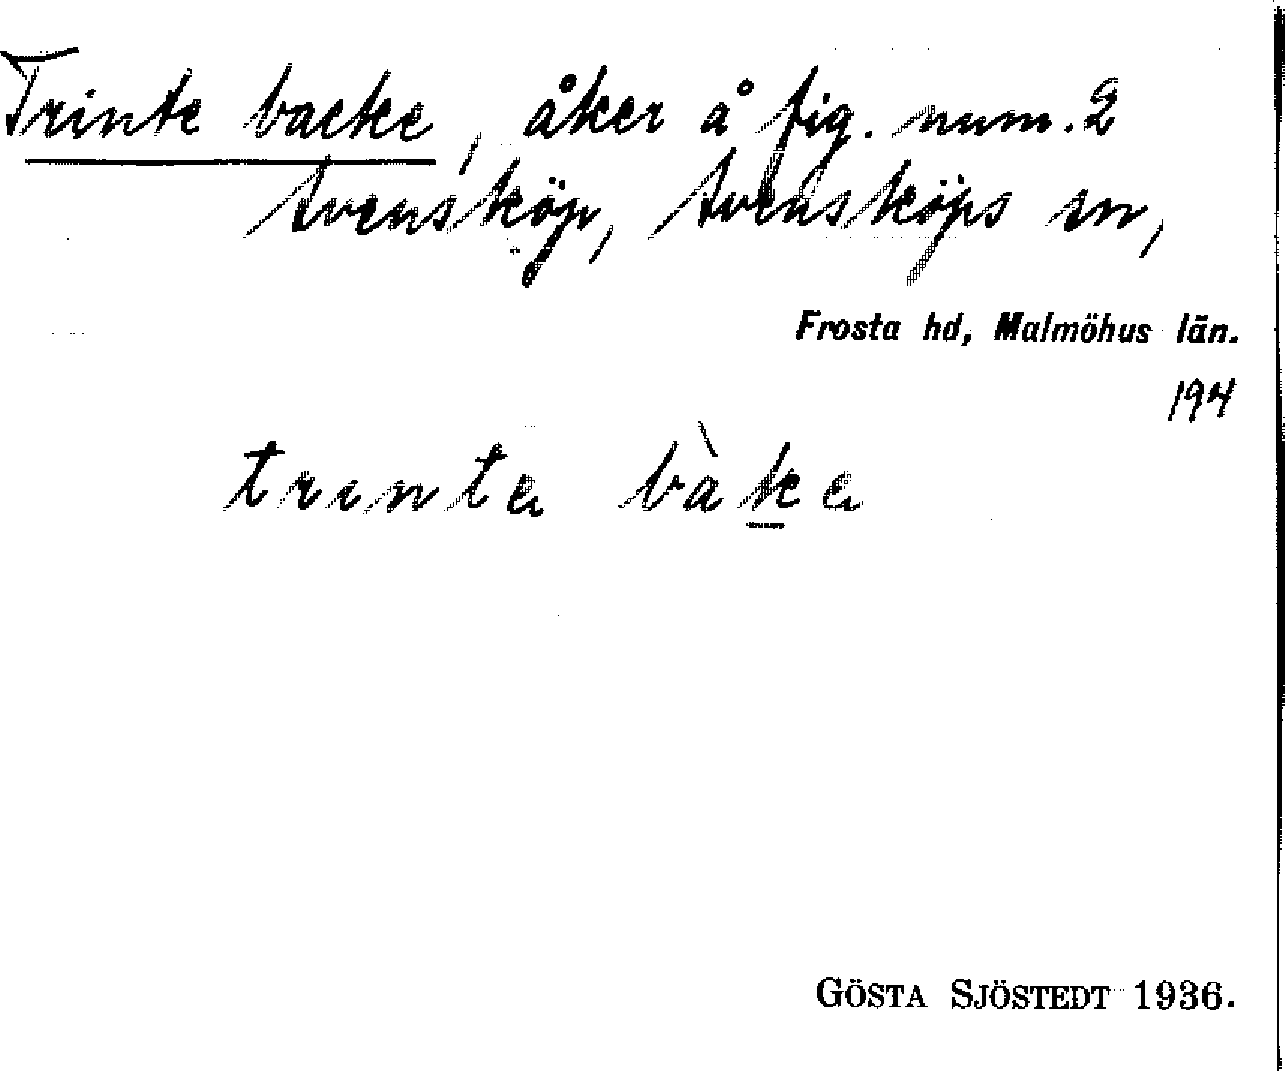 Trinte backe, åker å fig. num. 2
Svensköp, Svensköps sn,
Frosta hd, Malmöhus län.
194
trinta bàka
GÖSTA SJÖSTEDT 1936.